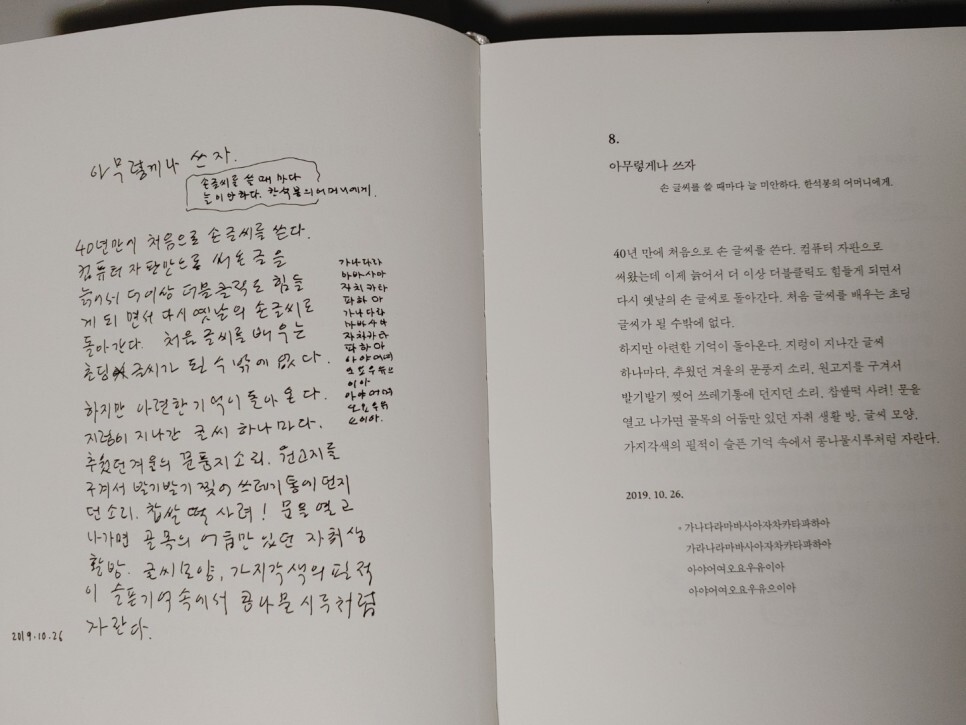 아무렇게나 쓰자.
손글씨를 쓸 때 마다
늘 미안하다. 한석봉의 어머니에게.
40년만에 처음으로 손글씨를 쓴다.
컴퓨터 자판만으로 써온 글을
늙어서 더이상 더블클릭도 힘들
게 되면서 다시 옛날의 손글씨로
돌아간다. 처음 글씨를 배우는
초딩 글씨가 될 수 밖에 없다.
하지만 아련한 기억이 돌아온다.
지렁이 지나간 글씨 하나 마다.
추웠던 겨울의 문풍지소리. 원고지를
구겨서 발기발기 찢어 쓰레기통에 던지
던 소리. 찹쌀 떡 사려! 문을 열고
나가면 골목의 어둠만 있던 자취생
활방. 글씨모양, 가지각색의 필적
이 슬픈기억속에서 콩나물시루처럼
자란다.
2019.10.26
가나다라
마바사아
자차카타
파하아
가나다라
마바사아
자차카타
파하아
아야어여
오요우유
이아
아야어여
오요우유
으이아.
8.
아무렇게나 쓰자
손 글씨를 쓸 때마다 늘 미안하다. 한석봉의 어머니에게.
40년 만에 처음으로 손 글씨를 쓴다. 컴퓨터 자판으로
써왔는데 이제 늙어서 더 이상 더블클릭도 힘들게 되면서
다시 옛날의 손 글씨로 돌아간다. 처음 글씨를 배우는 초딩
글씨가 될 수밖에 없다.
하지만 아련한 기억이 돌아온다. 지렁이 지나간 글씨
하나마다, 추웠던 겨울의 문풍지 소리, 원고지를 구겨서
발기발기 찢어 쓰레기통에 던지던 소리, 찹쌀떡 사려! 문을
열고 나가면 골목의 어둠만 있던 자취 생활 방, 글씨 모양,
가지각색의 필적이 슬픈 기억 속에서 콩나물시루처럼 자란다.
2019. 10. 26.
◦ 가나다라마바사아자차카타파하아
가라나라마바사아자차카타파하아
아야어여오요우유이아
아야어여오요우유으이아